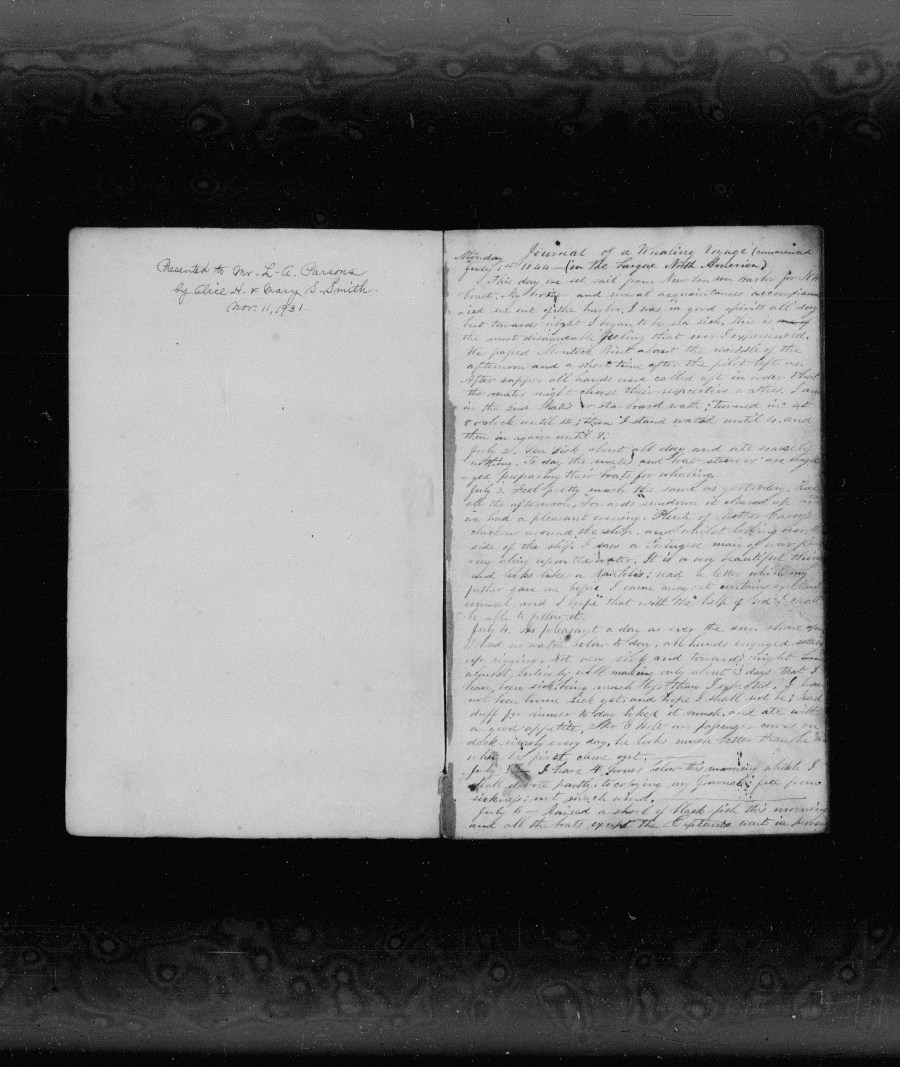 Presented to Mr. L. A. Parsons
by Alice H. & Mary S. Smith.
Nov. 11, 1931.
Journal of a Whaling Voyage (commenced
Monday
July 1st 1844 — (in the barque North America)
This day we set sail from New London harbor for N W
Coast. My brother and several acquaintances accompan
ied us out of the harbor. I was in good spirits all day
but towards night I began to be sea sick, this is
the most disagreeable feeling that ever I experienced.
We passed Montock Point about the middle of the
afternoon and a short time after the pilot left us.
After supper all hands were called aft in order that
the mates might choose their respective watches. I am
in the 2nd Mate's or starboard watch; turned in at
8 o'clock until 12; then I stand watch until 4 and
then in again until 8;
July 2. Sea sick about all day and ate scarcely
nothing. To day the mates and boat steerers are enga
ged preparing their boats for whaling.
July 3. Feel pretty much the same as yesterday.
all the afternoon. Towards sundown it cleared up and
we had a pleasant evening. Plenty of Mother Carey's
chickens around the ship, and whilst looking over the
side of the ship I saw a Portugese man of war
ing along upon the water. It is a very beautiful thing
and looks like a Nautilis; read a letter which my
father gave me before I came away, it contains excellent
counsel and I hope that with the help of God I shall
be able to follow it.
July 4. As pleasant a day as ever the sun shone upon
I had no watch below to day, all hands engaged setting
up rigging. Not very sick and towards night am
almost entirely well making only about 3 days that I
have been sick, being much less than I expected. I have
not been home sick yet and hope I shall not be; had
duff for dinner to day liked it much and ate with
a good appetite. Mr our passenger comes on
deck nearly every day, he looks much better than he did
when he first came out.
July 5 I have 4 hours below this morning which I
shall devote partly to copying my Journal; free from
sickness; not much wind.
July 6 Raised a shoal of black fish this morning
and all the boats except the Captains went in